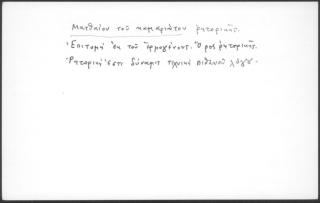 Ματθαίου τοῦ καμαριώτου ῥητορικῆς.
Ἐπιτομὴ ἐκ τοῦ Ἑρμογένους. Ὅρος ῥητορικῆς.
Ῥητορική ἐστι δύναμις τεχνικὴ πιθανοῦ λόγου.